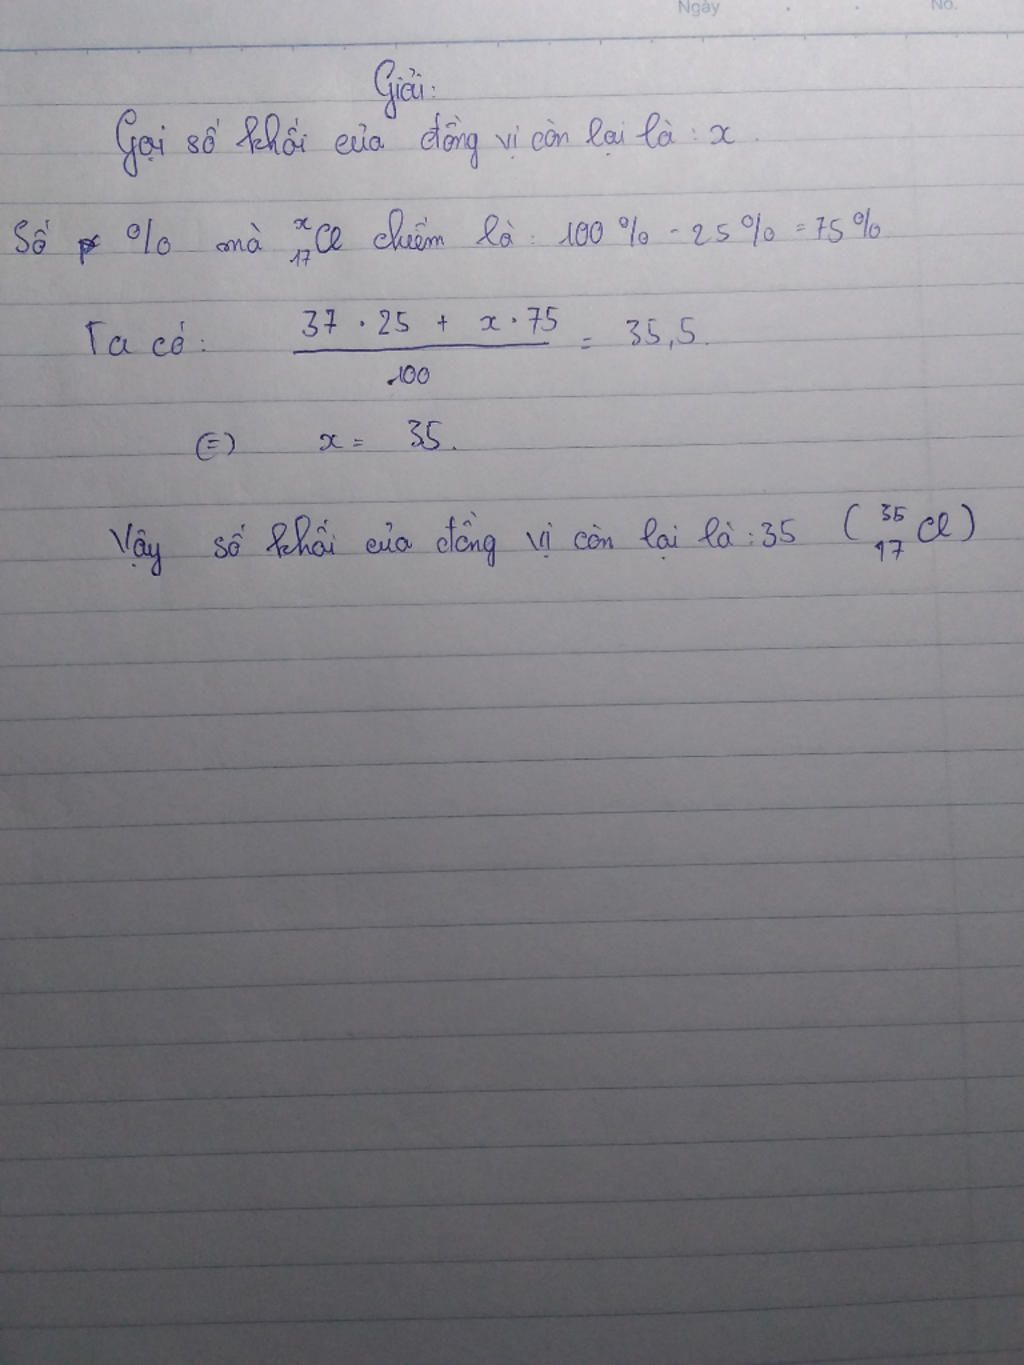 Ngày No.
Giải:
Gọi số khối của đồng vị còn lại là: x.
Số % mà ˣ₁₇Cl chiếm là: 100% - 25% = 75%
Ta có: (37 . 25 + x . 75) / 100 = 35,5.
(=) x = 35.
Vậy số khối của đồng vị còn lại là: 35 (³⁵₁₇Cl)